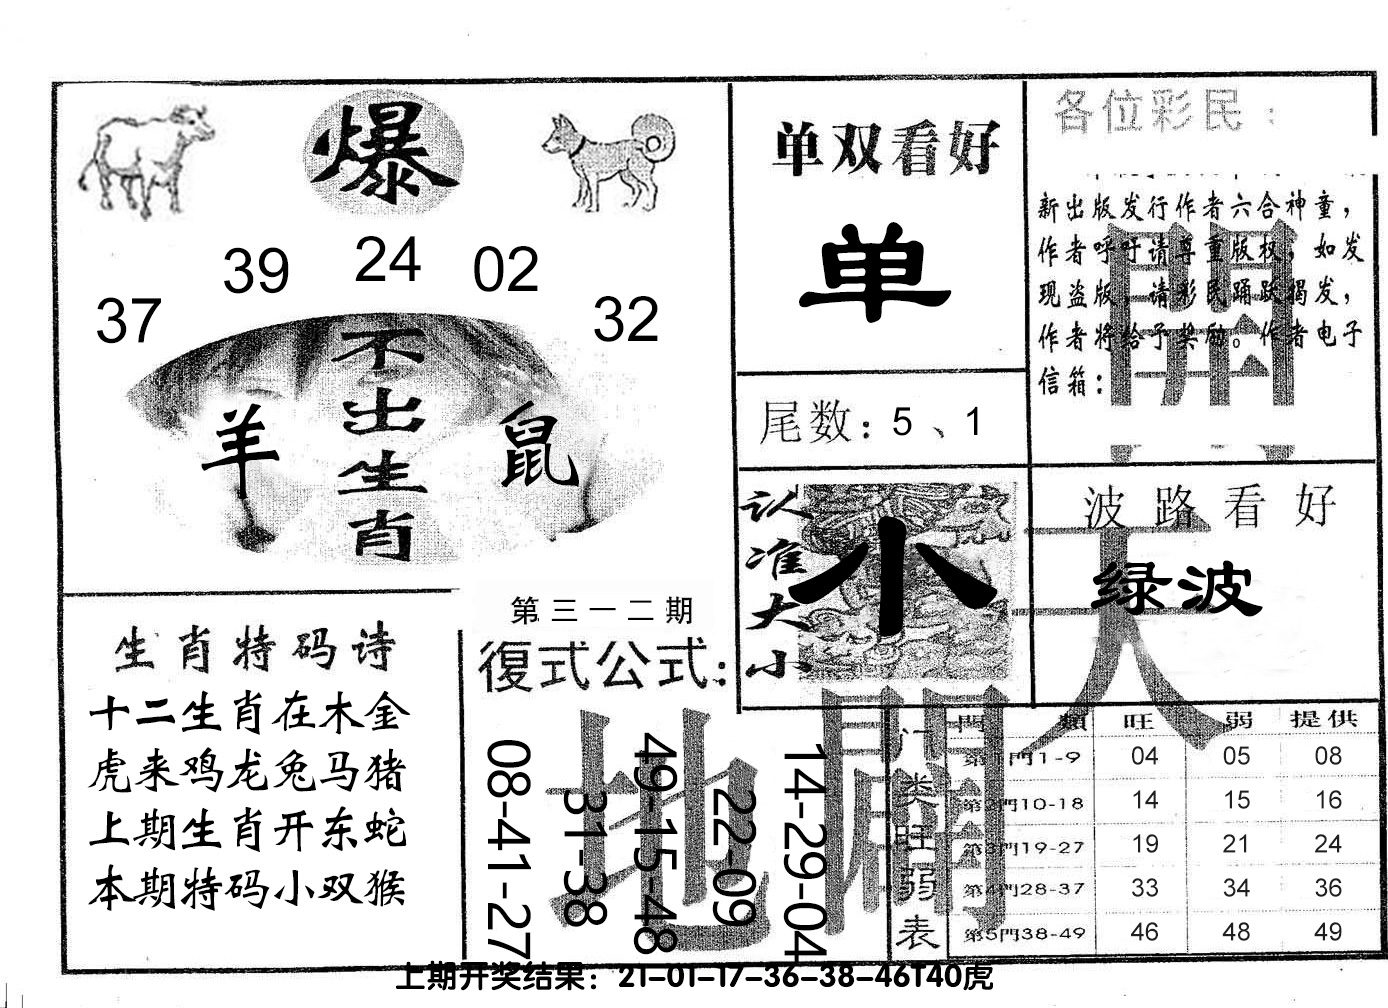 爆
37 39 24 02 32
不出生肖
羊 鼠
单双看好
单
尾数: 5、1
各位彩民:
新出版发行作者六合神童,
作者呼吁请尊重版权,如发
现盗版,请彩民踊跃揭发,
作者将给予奖励。作者电子
信箱:
認准大小
小
波路看好
绿波
天開地闢
生肖特码诗
十二生肖在木金
虎来鸡龙兔马猪
上期生肖开东蛇
本期特码小双猴
第三一二期
復式公式:
08-41-27
31-38
49-15-48
22-09
14-29-04
门类旺弱表
門類 旺 弱 提供
第1門1-9 04 05 08
第2門10-18 14 15 16
第3門19-27 19 21 24
第4門28-37 33 34 36
第5門38-49 46 48 49
上期开奖结果：21-01-17-36-38-46T40虎